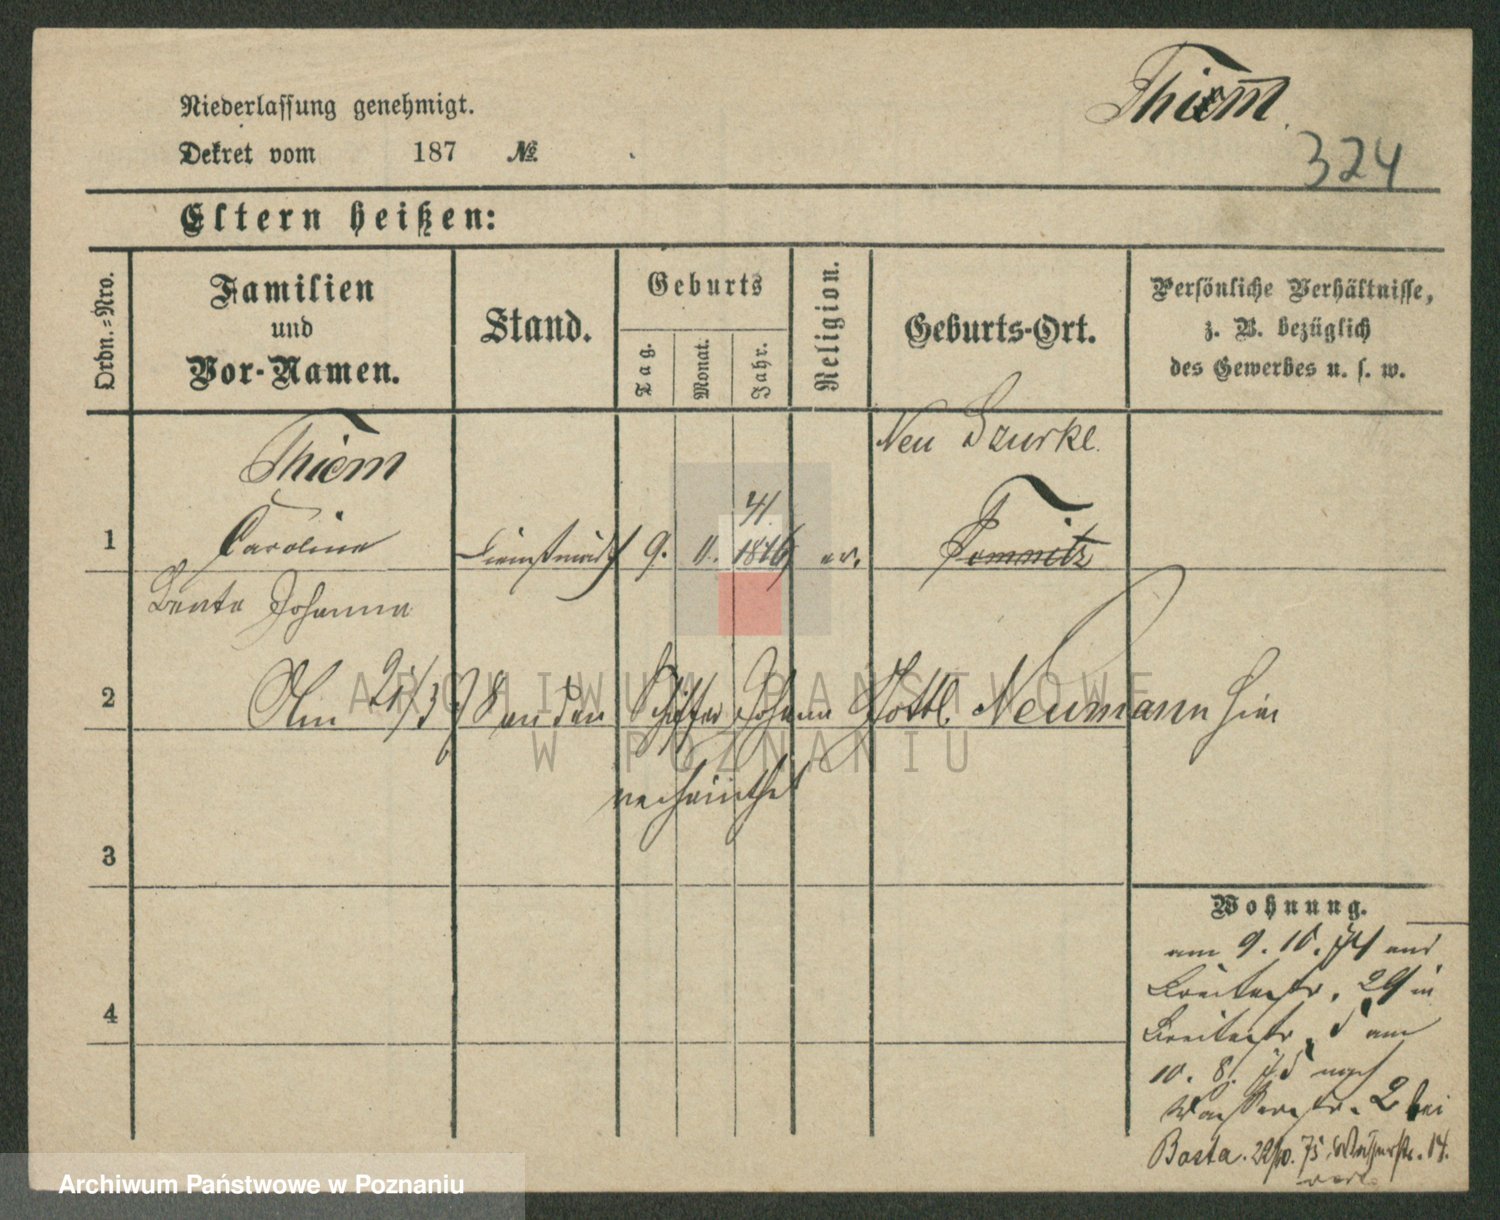 Thiem
324
Niederlassung genehmigt.
Dekret vom 187 №
Eltern heißen:
Ordn.=Nro.
Familien
und
Vor-Namen.
Stand.
Geburts
Tag.
Monat.
Jahr.
Religion.
Geburts-Ort.
Persönliche Verhältnisse,
z. B. bezüglich
des Gewerbes u. s. w.
Neu
Thiem
41
1 Caroline Dienstmagd 9. 11. 1846 ev. Pomnitz
Beate Johanna
2 Am 21/3 78 an den Schiffer Johann Gottl. Neumann hier
verheirathet
3
4
Wohnung.
am 9. 10. 74 aus
Breitestr. 29 in
Breitestr. 5 am
10. 8. 75 nach
Wasserstr. 2 bei
Basta. 22/10. 75 14.
ARCHIWUM PAŃSTWOWE
W POZNANIU
Archiwum Państwowe w Poznaniu